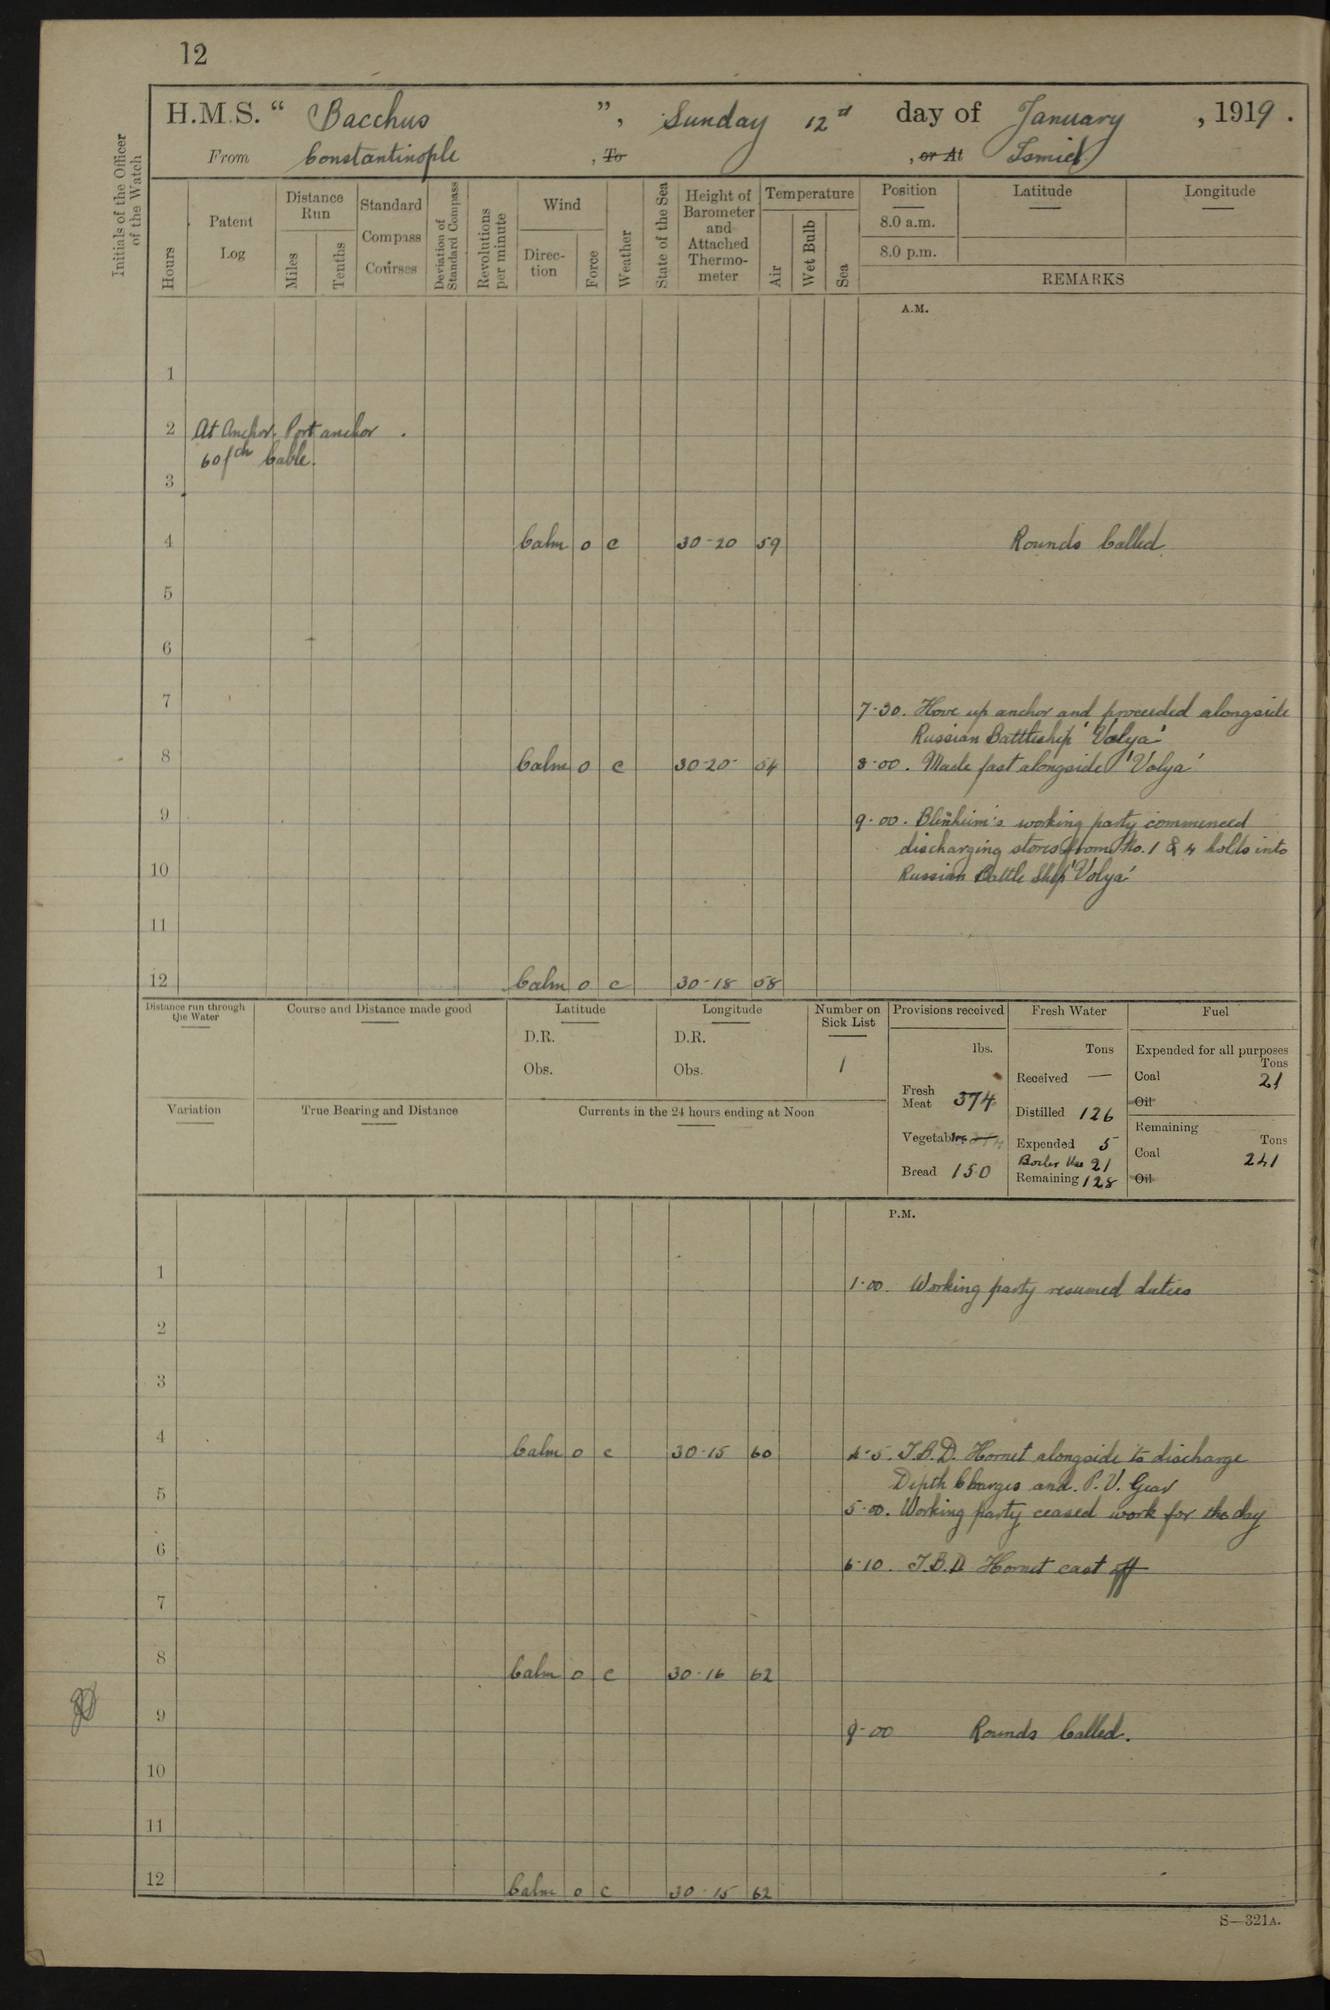 12
H.M.S. “ Bacchus ”, Sunday 12th day of January , 1919.
From Constantinople , To , or At Ismid
Initials of the Officer of the Watch
Hours
Patent Log
Distance Run
Miles
Tenths
Standard Compass Courses
Deviation of Standard Compass
Revolutions per minute
Wind
Direction
Force
Weather
State of the Sea
Height of Barometer and Attached Thermometer
Temperature
Air
Wet Bulb
Sea
Position
8.0 a.m.
8.0 p.m.
Latitude
Longitude
REMARKS
A.M.
1
2 At Anchor. Port anchor.
60 fth Cable.
3
4 Calm 0 c 30-20 59 Rounds Called
5
6
7 7-30. Hove up anchor and proceeded alongside
Russian Battleship 'Volya'
8 Calm 0 c 30-20 54 8-00. Made fast alongside 'Volya'
9 9-00. Blenheim's working party commenced
discharging stores from No. 1 & 4 holds into
10 Russian Battle Ship 'Volya'
11
12 Calm 0 c 30-18 58
Distance run through the Water
Course and Distance made good
Latitude
D.R.
Obs.
Longitude
D.R.
Obs.
Number on Sick List
1
Variation
True Bearing and Distance
Currents in the 24 hours ending at Noon
Provisions received
lbs.
Fresh Meat 374
Vegetables —
Bread 150
Fresh Water
Tons
Received —
Distilled 126
Expended 5
Boiler Use 21
Remaining 128
Fuel
Expended for all purposes
Tons
Coal 21
Oil
Remaining
Tons
Coal 241
Oil
P.M.
1 1-00. Working party resumed duties
2
3
4 Calm 0 c 30-15 60 4-5. T.B.D. Hornet alongside to discharge
Depth Charges and P.V. Gear
5 5-00. Working party ceased work for the day
6 6-10. T.B.D. Hornet cast off
7
8 Calm 0 c 30-16 62
9 9-00 Rounds Called.
10
11
12 Calm 0 c 30-15 62
S—321A.